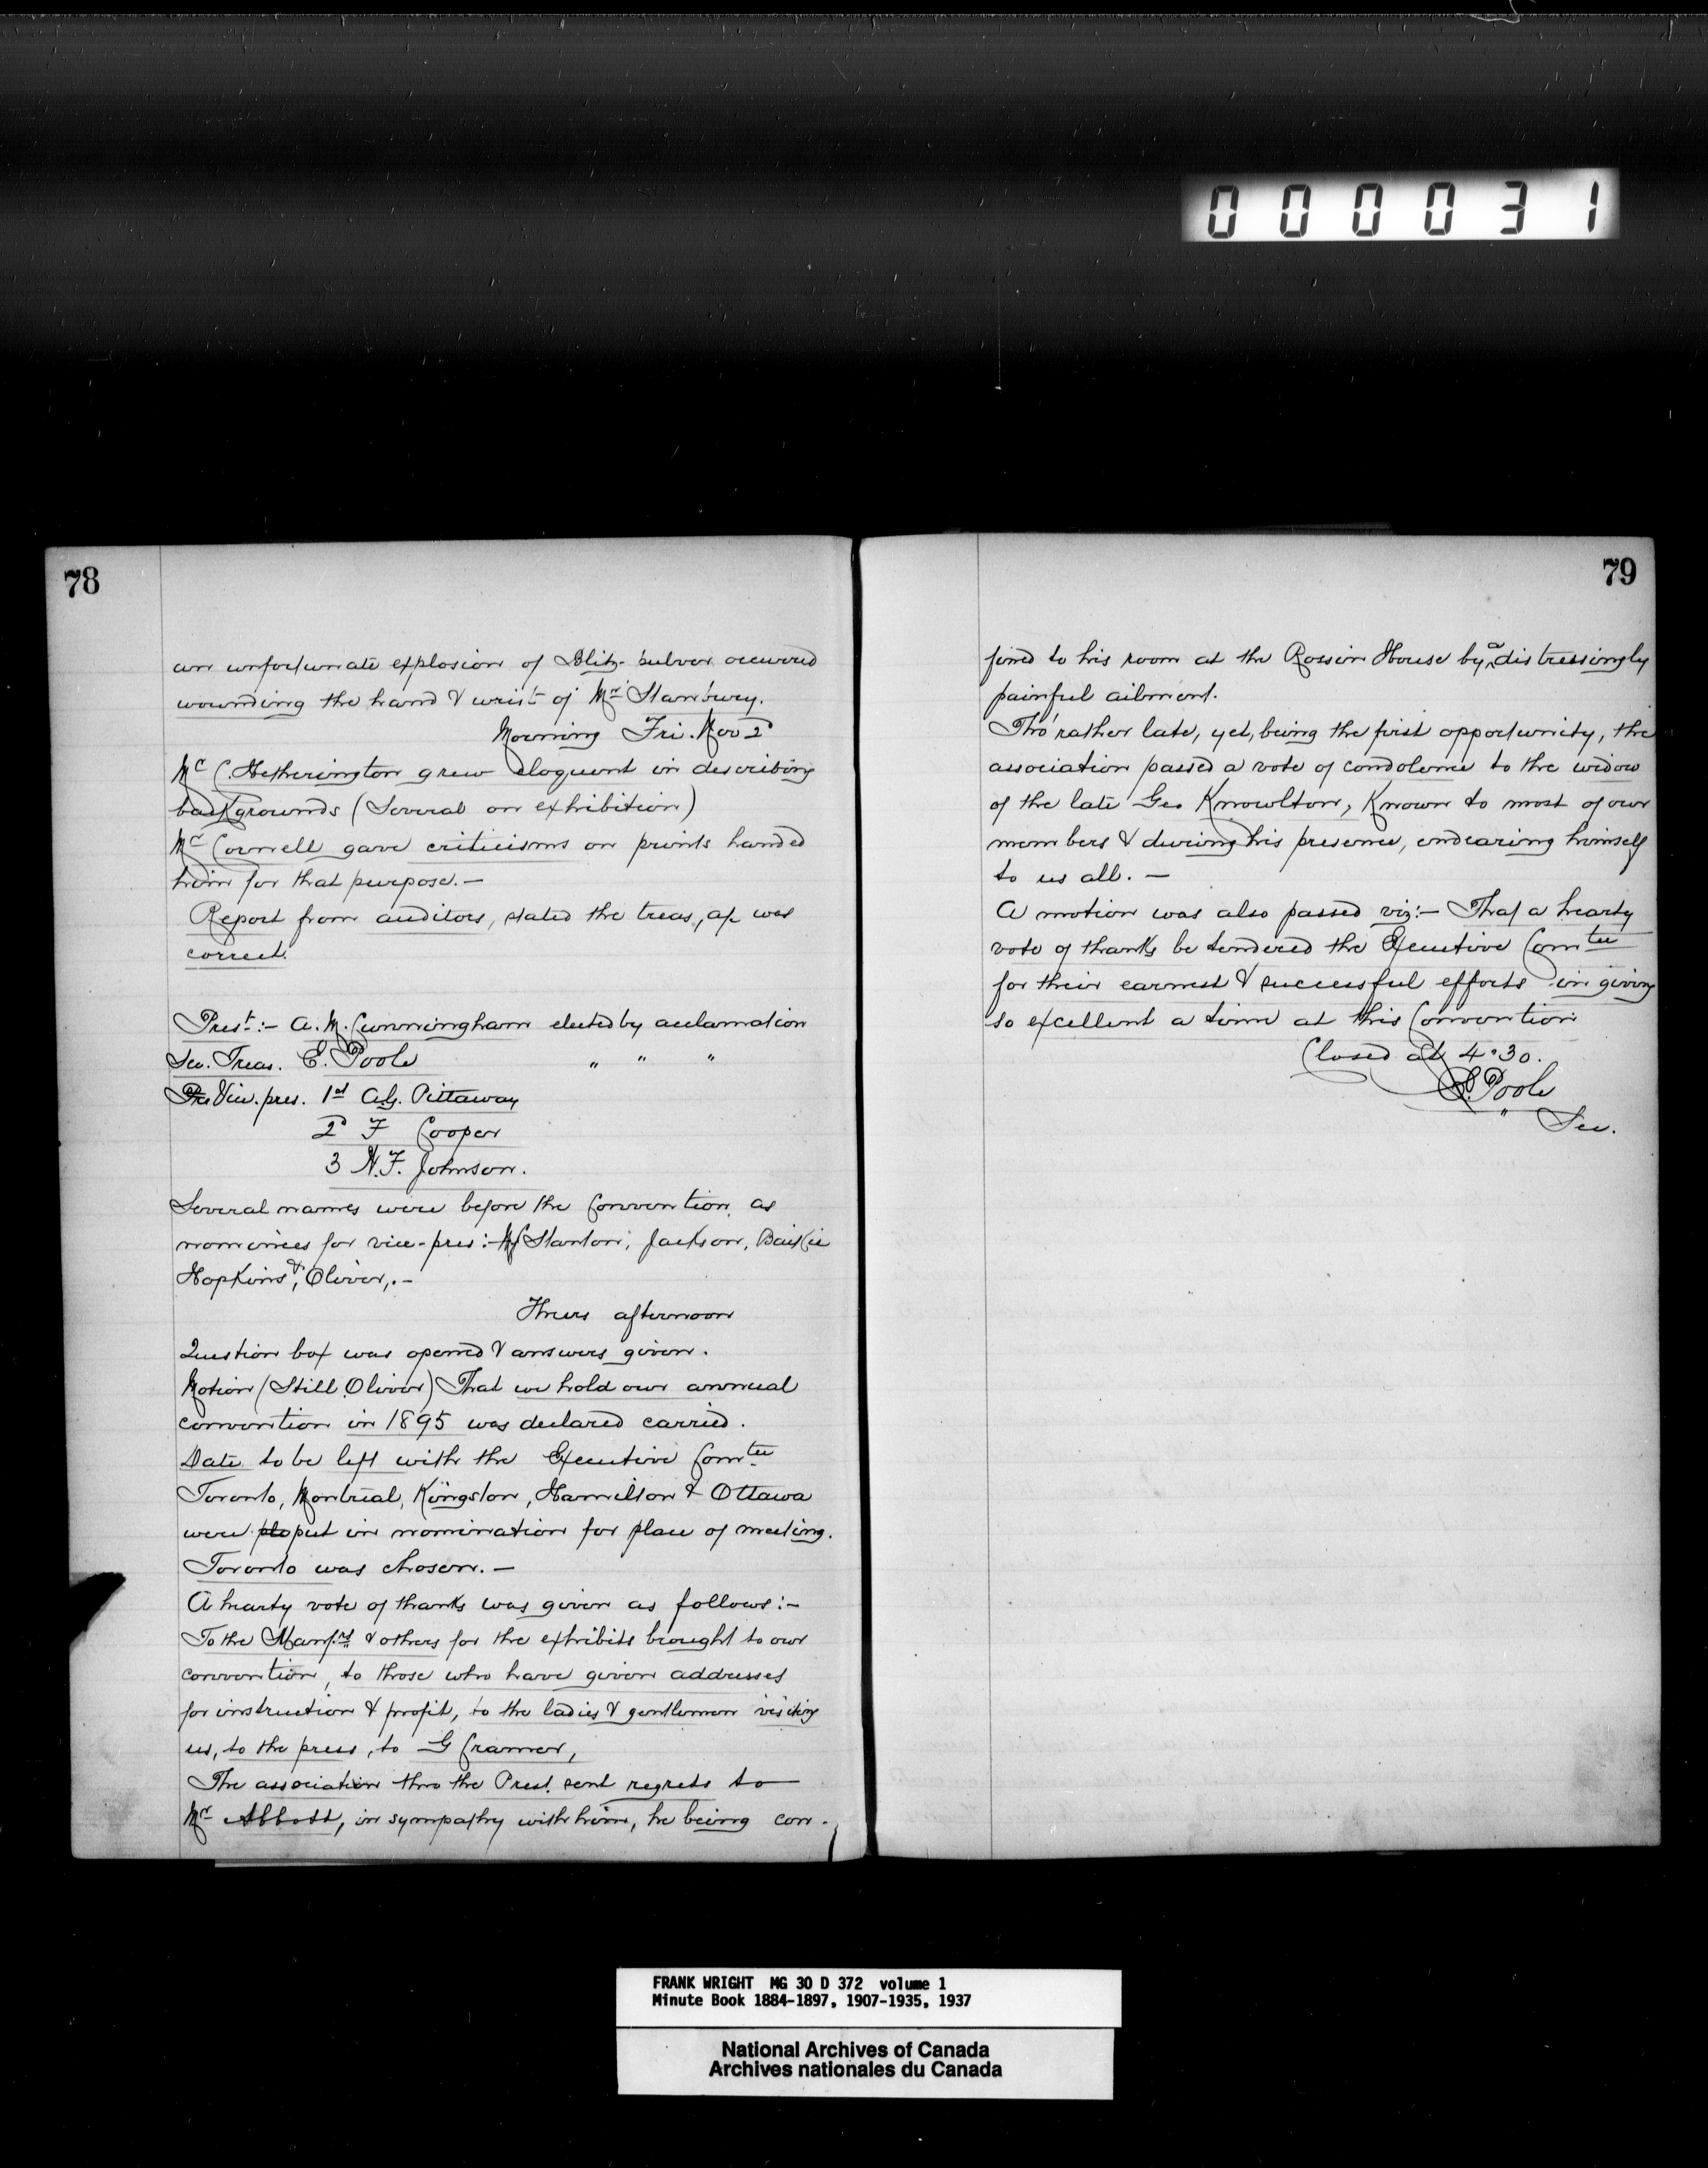 000031
78
an unfortunate explosion of Blitz-pulver occurred
wounding the hand & wrist of Mr Stanbury.
Morning Fri. Nov 2d
Mr C Hetherington grew eloquent in describing
backgrounds (Several on exhibition)
Mr Cornell gave criticisms on prints handed
him for that purpose.—
Report from auditors, stated the treas, a/c was
correct.
Prest:— A. M. Cunningham elected by acclamation
Sec. Treas. E. Poole " " "
Pre Vice. pres. 1st A.G. Pittaway
2d F Cooper
3 H.F. Johnson.
Several names were before the Convention, as
nominees for vice-pres:— Stanton, Jackson,
Hopkins, & Oliver,.—
Thurs afternoon
Question box was opened & answers given.
Motion (Still Oliver) That we hold our annual
convention in 1895 was declared carried.
Date to be left with the Executive Comtee
Toronto, Montreal, Kingston, Hamilton & Ottawa
were pla put in nomination for place of meeting.
Toronto was chosen.—
A hearty vote of thanks was given as follows:—
To the Manf.rs & others for the exhibits brought to our
convention, to those who have given addresses
for instruction & profit, to the ladies & gentlemen visiting
us, to the press, to G Cramer,
The association thro the Prest. sent regrets to
Mr Abbott, in sympathy with him, he being con-
79
fined to his room at the Rossin House by a distressingly
painful ailment.
Tho' rather late, yet, being the first opportunity, the
association passed a vote of condolence to the widow
of the late Geo Knowlton, Known to most of our
members & during his presence, endearing himself
to us all.—
A motion was also passed viz:— That a hearty
vote of thanks be tendered the Executive Comtee
for their earnest & successful efforts in giving
so excellent a time at this Convention
Closed at 4.30.
E. Poole
Sec.
FRANK WRIGHT MG 30 D 372 volume 1
Minute Book 1884-1897, 1907-1935, 1937
National Archives of Canada
Archives nationales du Canada